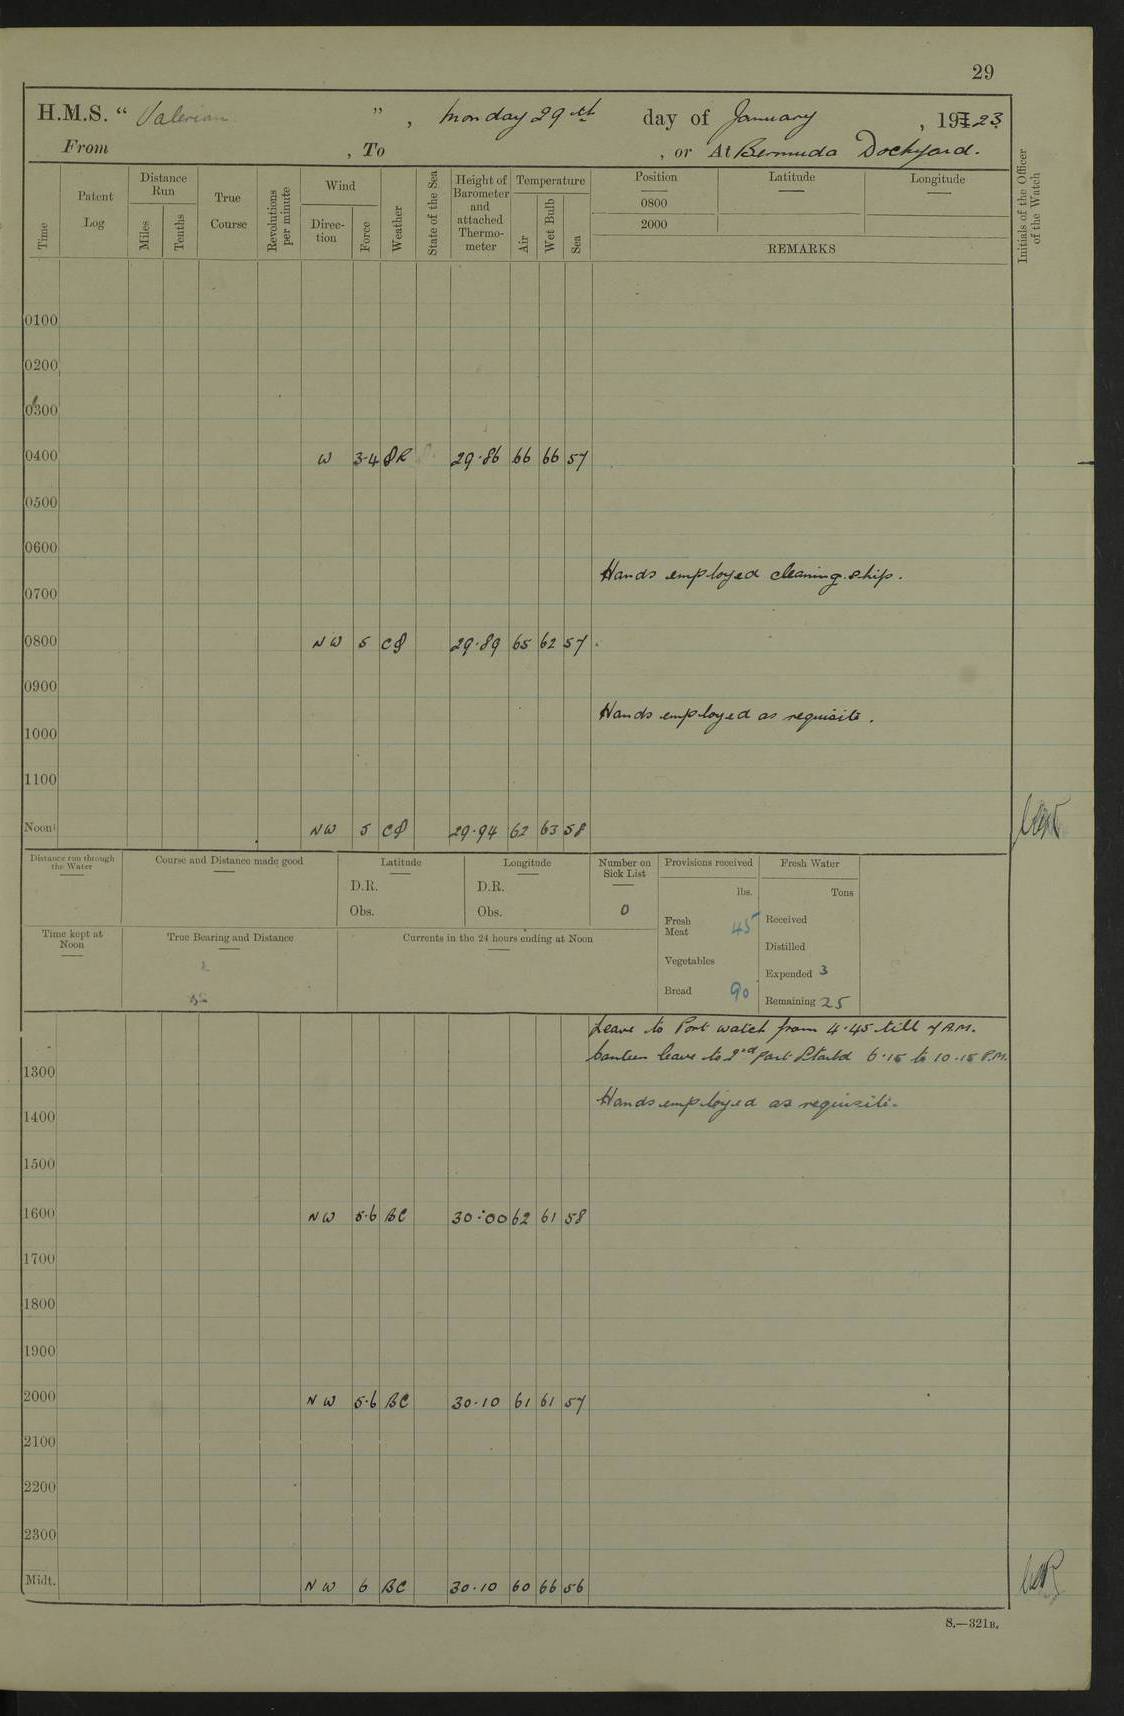 29
H.M.S. “ Valerian ” , Monday 29th day of January , 191 23
From , To , or At Bermuda Dockyard.
Time
Patent Log
Distance Run
Miles
Tenths
True Course
Revolutions per minute
Wind
Direc-tion
Force
Weather
State of the Sea
Height of Barometer and attached Thermo-meter
Temperature
Air
Wet Bulb
Sea
Position
0800
2000
Latitude
Longitude
REMARKS
Initials of the Officer of the Watch
0100
0200
0300
0400 W 3·4 29·86 66 66 57
0500
0600
Hands employed cleaning ship.
0700
0800 NW 5 29·89 65 62 57
0900
Hands employed as requisite.
1000
1100
Noon NW 5 29·94 62 63 58
Distance run through the Water
Course and Distance made good
Latitude
D.R.
Obs.
Longitude
D.R.
Obs.
Number on Sick List
0
Provisions received
lbs.
Fresh Meat 45
Vegetables
Bread 90
Fresh Water
Tons
Received
Distilled
Expended 3
Remaining 25
Time kept at Noon
True Bearing and Distance
Currents in the 24 hours ending at Noon
Leave to Port watch from 4·45 till 7 A.M.
Canteen leave to 2nd part Starbd 6·15 to 10·15 P.M.
1300
Hands employed as requisite.
1400
1500
1600 NW 5·6 BC 30·00 62 61 58
1700
1800
1900
2000 NW 5·6 BC 30·10 61 61 57
2100
2200
2300
Midt. NW 6 BC 30·10 60 66 56
S.—321B.